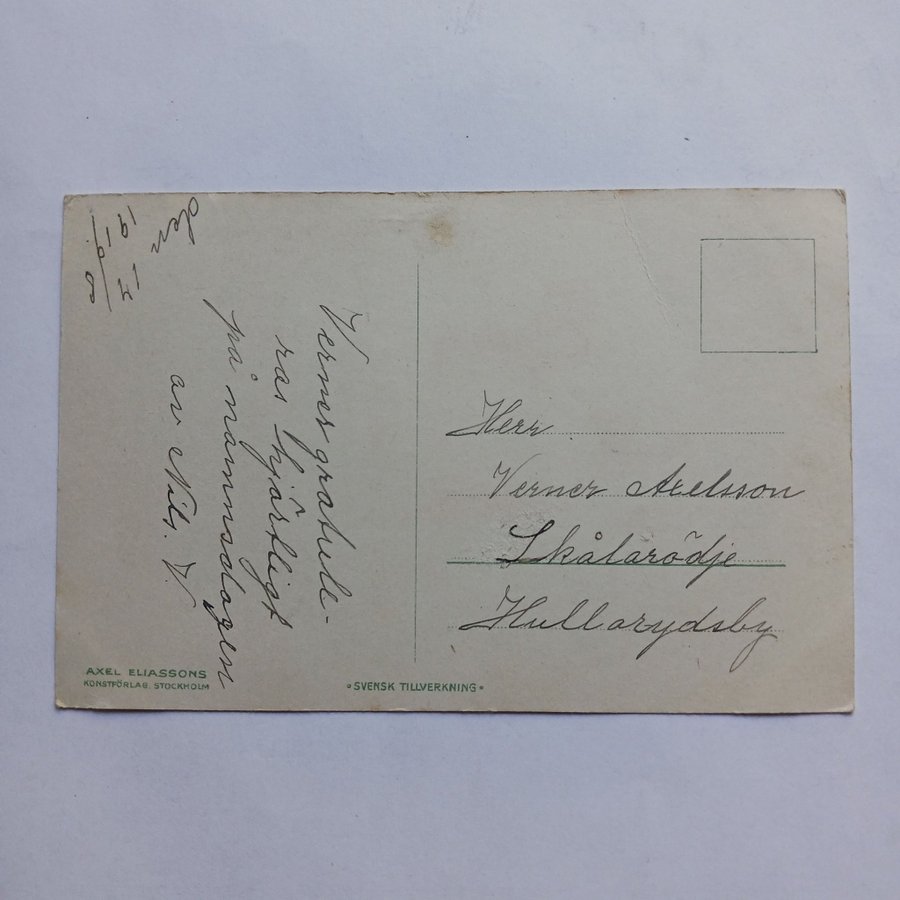 Verner gratule-
ras hjärtligt
på namnsdagen
av Nils. V.
den
Herr
Verner Axelsson
Skålarödje
Hullarydsby
AXEL ELIASSONS
KONSTFÖRLAG. STOCKHOLM
•SVENSK TILLVERKNING•